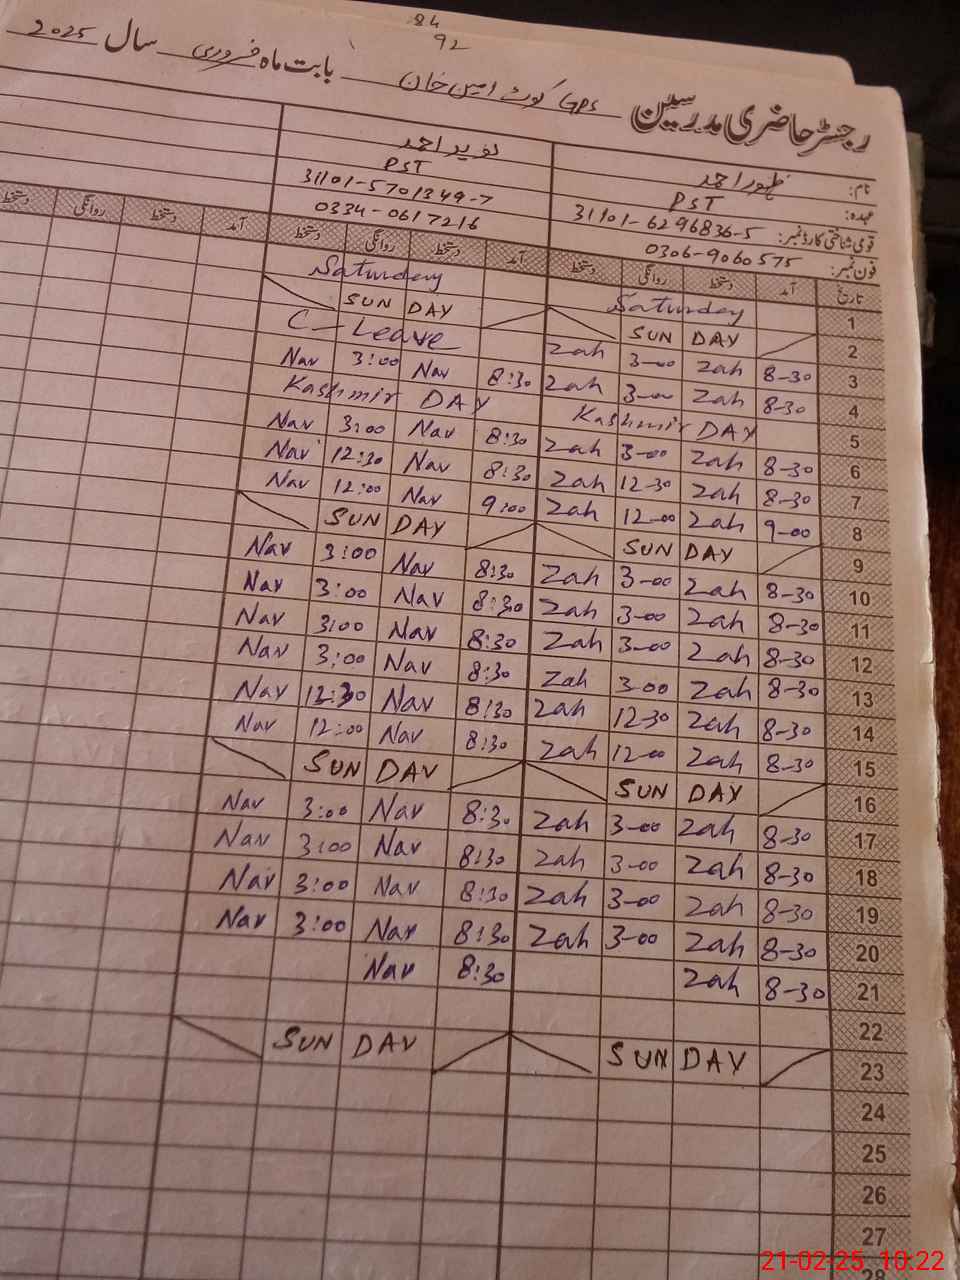 84
92
رجسٹر حاضری مدرسین GPS کوٹ امین خان بابت ماہ فروری سال 2025
نام: ظہور احمد نوید احمد
عہدہ: PST PST
قومی شناختی کارڈ نمبر: 31101-6296836-5 31101-5701349-7
فون نمبر: 0306-9060575 0334-0617216
تاریخ آمد دستخط روانگی دستخط آمد دستخط روانگی دستخط آمد دستخط روانگی دستخط
1 Saturday Saturday
2 SUN DAY SUN DAY
3 8-30 Zah 3-00 Zah C-Leave
4 8-30 Zah 3-00 Zah 8:30 Nav 3:00 Nav
5 Kashmir DAY Kashmir DAY
6 8-30 Zah 3-00 Zah 8:30 Nav 3:00 Nav
7 8-30 Zah 12-30 Zah 8:30 Nav 12:30 Nav
8 9-00 Zah 12-00 Zah 9:00 Nav 12:00 Nav
9 SUN DAY SUN DAY
10 8-30 Zah 3-00 Zah 8:30 Nav 3:00 Nav
11 8-30 Zah 3-00 Zah 8:30 Nav 3:00 Nav
12 8-30 Zah 3-00 Zah 8:30 Nav 3:00 Nav
13 8-30 Zah 3-00 Zah 8:30 Nav 3:00 Nav
14 8-30 Zah 12-30 Zah 8:30 Nav 12:30 Nav
15 8-30 Zah 12-00 Zah 8:30 Nav 12:00 Nav
16 SUN DAY SUN DAY
17 8-30 Zah 3-00 Zah 8:30 Nav 3:00 Nav
18 8-30 Zah 3-00 Zah 8:30 Nav 3:00 Nav
19 8-30 Zah 3-00 Zah 8:30 Nav 3:00 Nav
20 8-30 Zah 3-00 Zah 8:30 Nav 3:00 Nav
21 8-30 Zah 8:30 Nav
22
23 SUN DAY SUN DAY
24
25
26
27
28
21-02-25 10:22